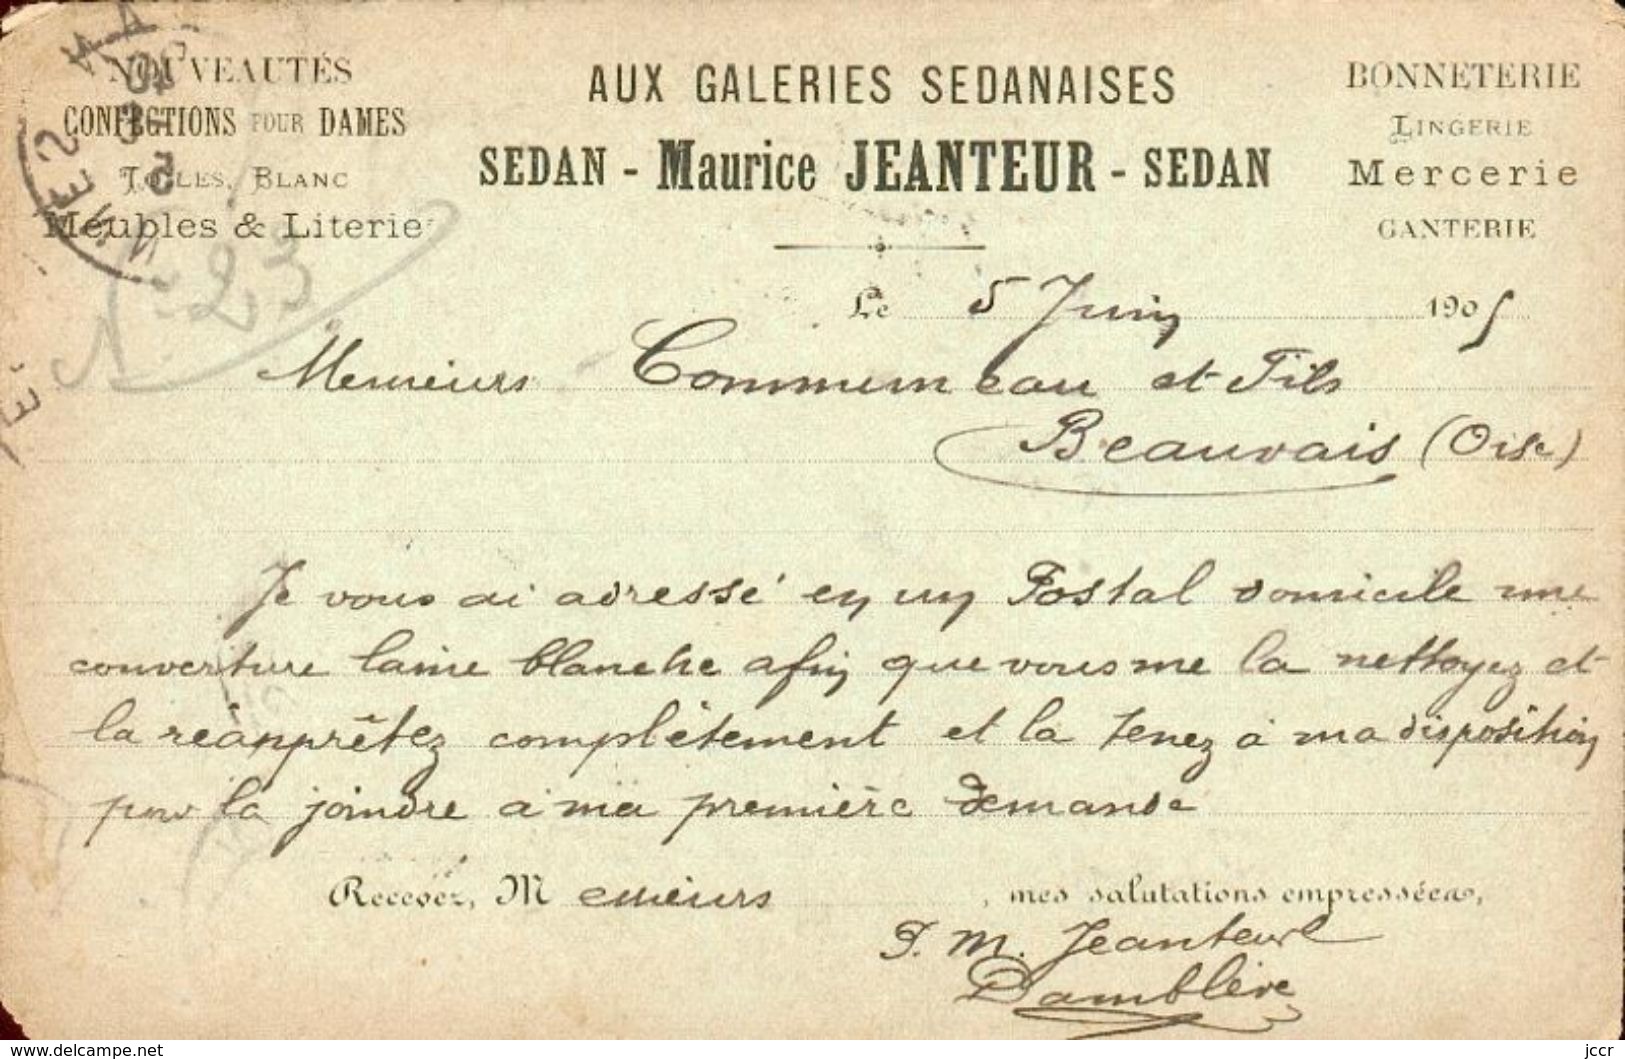 NOUVEAUTÉS
CONFECTIONS POUR DAMES
TOILES, BLANC
Meubles & Literie
AUX GALERIES SEDANAISES
SEDAN - Maurice JEANTEUR - SEDAN
BONNETERIE
LINGERIE
Mercerie
GANTERIE
N° 23
Le 5 Juin 1905
Messieurs Communeau et Fils
Beauvais (Oise)
Je vous ai adressé en un Postal domicile une
couverture laine blanche afin que vous me la nettoyez et
la réapprêtez complètement et la tenez à ma disposition
pour la joindre à ma première demande
Recevez, Messieurs, mes salutations empressées,
P. M. Jeanteur
Damblève
www.delcampe.net
jccr